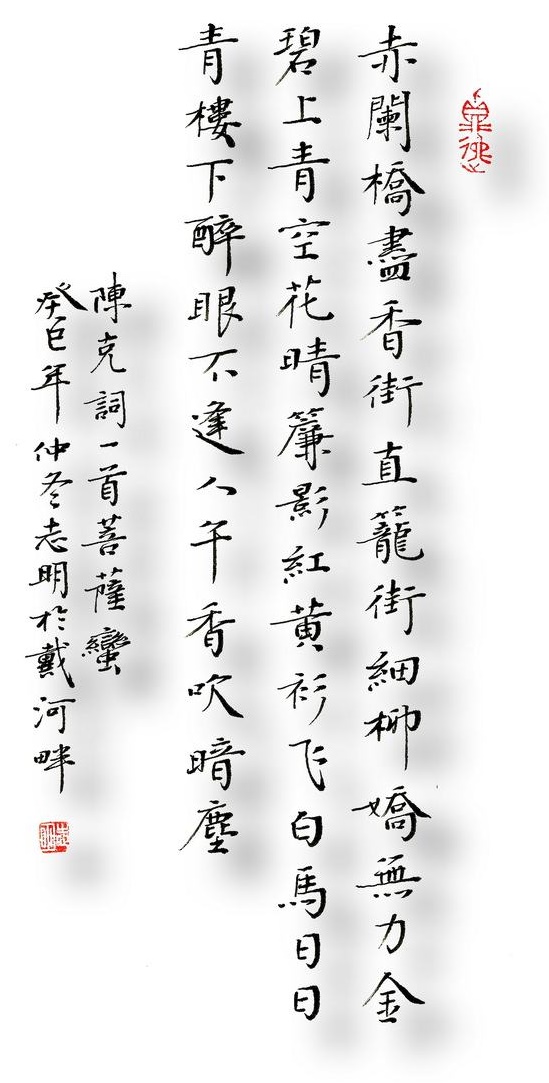 赤闌橋盡香街直籠街細柳嬌無力金
碧上青空花晴簾影紅黄衫飞白馬日日
青樓下醉眼不逢人午香吹暗塵
陳克詞一首菩薩蠻
癸巳年仲冬志明於戴河畔